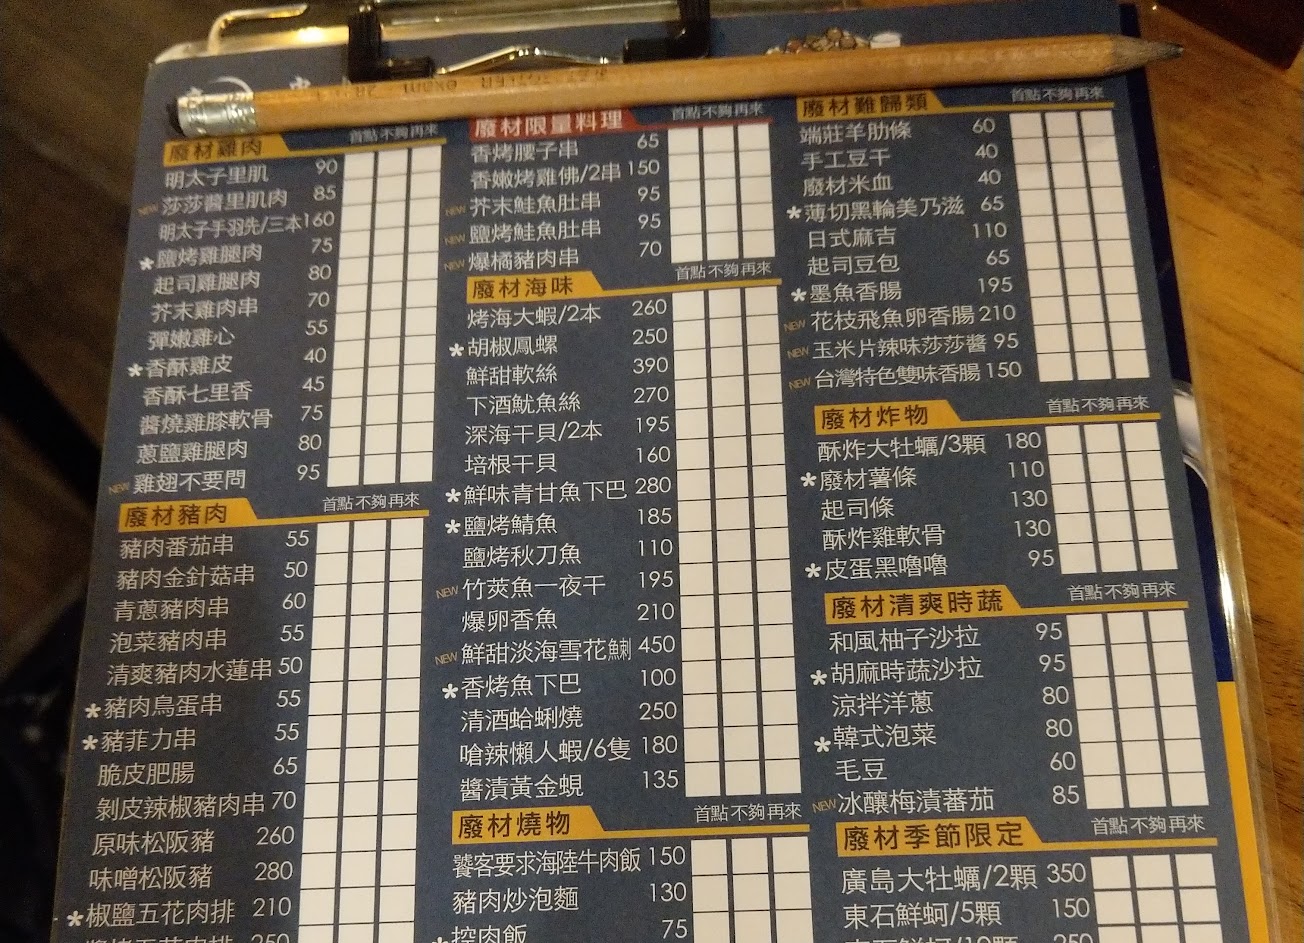 廢材雞肉 首點 不夠 再來
明太子里肌 90
NEW 莎莎醬里肌肉 85
明太子手羽先/三本 160
*鹽烤雞腿肉 75
起司雞腿肉 80
芥末雞肉串 70
彈嫩雞心 55
*香酥雞皮 40
香酥七里香 45
醬燒雞膝軟骨 75
蔥鹽雞腿肉 80
NEW 雞翅不要問 95
廢材豬肉 首點 不夠 再來
豬肉番茄串 55
豬肉金針菇串 50
青蔥豬肉串 60
泡菜豬肉串 55
清爽豬肉水蓮串 50
*豬肉鳥蛋串 55
*豬菲力串 55
脆皮肥腸 65
剝皮辣椒豬肉串 70
原味松阪豬 260
味噌松阪豬 280
*椒鹽五花肉排 210
廢材限量料理 首點 不夠 再來
香烤腰子串 65
香嫩烤雞佛/2串 150
NEW 芥末鮭魚肚串 95
NEW 鹽烤鮭魚肚串 95
NEW 爆橘豬肉串 70
廢材海味 首點 不夠 再來
烤海大蝦/2本 260
*胡椒鳳螺 250
鮮甜軟絲 390
下酒魷魚絲 270
深海干貝/2本 195
培根干貝 160
*鮮味青甘魚下巴 280
*鹽烤鯖魚 185
鹽烤秋刀魚 110
NEW 竹莢魚一夜干 195
爆卵香魚 210
NEW 鮮甜淡海雪花鯻 450
*香烤魚下巴 100
清酒蛤蜊燒 250
嗆辣懶人蝦/6隻 180
醬漬黃金蜆 135
廢材燒物 首點 不夠 再來
饕客要求海陸牛肉飯 150
豬肉炒泡麵 130
*控肉飯 75
廢材難歸類 首點 不夠 再來
端莊羊肋條 60
手工豆干 40
廢材米血 40
*薄切黑輪美乃滋 65
日式麻吉 110
起司豆包 65
*墨魚香腸 195
NEW 花枝飛魚卵香腸 210
NEW 玉米片辣味莎莎醬 95
NEW 台灣特色雙味香腸 150
廢材炸物 首點 不夠 再來
酥炸大牡蠣/3顆 180
*廢材薯條 110
起司條 130
酥炸雞軟骨 130
*皮蛋黑嚕嚕 95
廢材清爽時蔬 首點 不夠 再來
和風柚子沙拉 95
*胡麻時蔬沙拉 95
涼拌洋蔥 80
*韓式泡菜 80
毛豆 60
NEW 冰釀梅漬蕃茄 85
廢材季節限定 首點 不夠 再來
廣島大牡蠣/2顆 350
東石鮮蚵/5顆 150